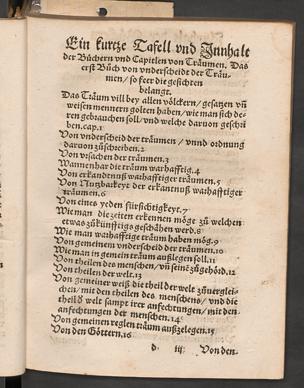 Ein kurtze Tafell vnd Jnnhalt
der Büchern vnd Capitlen von Träumen. Das
erst Bůch von vnderscheidt der Träu-
men / so feer die gesichten
belangt.
Das Träum vill bey allen völckern / gesatzen vñ
weisen mennern golten haben / wie man sich de-
ren gebrauchen soll / vnd welche daruon geschri
ben. cap. 1
Von vnderscheid der träumen / vnnd ordnung
daruon zůschreiben. 2
Von vrsachen der träumen. 3
Wannenhar die träum warhafftig. 4
Von erkandtnuß warhafftiger träumen. 5
Von Nutzbarkeyt der erkantnuß warhafftiger
träumen. 6
Von eines yeden fürsichtigkeyt. 7
Wie man die zeiten erkennen möge zů welchen
etwas zůkünfftigs geschähen werd. 8
Wie man warhafftige träum haben mög. 9
Von gemeinem vnderscheid der träumen. 10
Wie man in gemein träum außlegen soll. 11
Von theilen des menschen / vñ seine zůgehörd. 12
Von theilen der welt. 13
Von gemeiner weiß die theil der welt zůuerglei-
chen / mit den theilen des menschens / vnd die
theil ð welt sampt irer anfechtungen / mit den
anfechtungen der menschen. 14
Von gemeinen reglen träum außzelegen. 15
Von den Göttern. 16
d iij Von den-